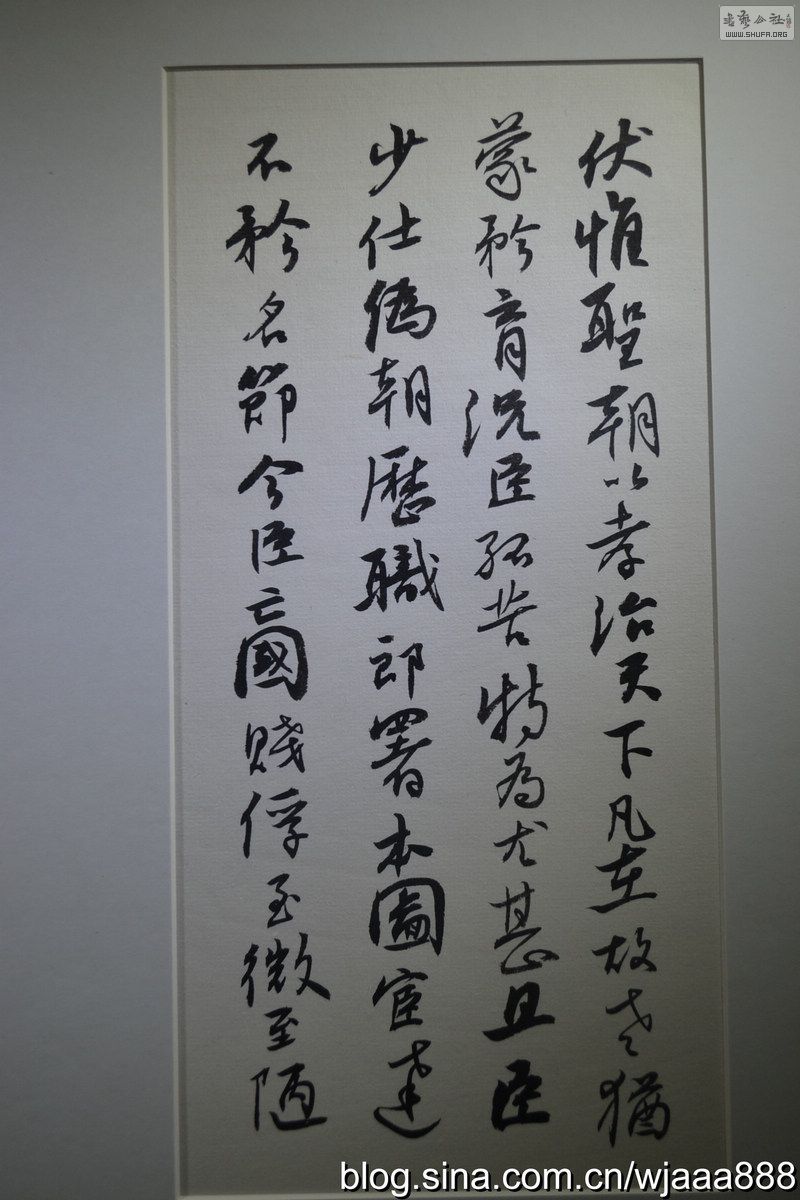 伏惟聖朝以孝治天下凡在故老猶
蒙矜育況臣孤苦特為尤甚且臣
少仕偽朝歷職郎署本圖宦達
不矜名節今臣亡國賤俘至微至陋
書藝公社
WWW.SHUFA.ORG
blog.sina.com.cn/wjaaa888